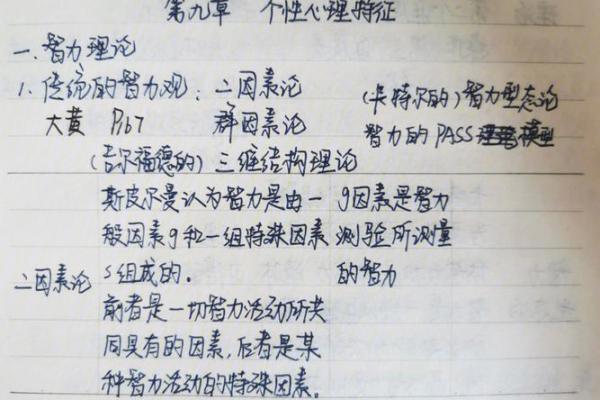 第九章 个性心理特征
一.智力理论
1.传统的智力观:二因素论 (卡特尔的)智力型态论
大黄 P167 群因素论 智力的PASS模型
(吉尔福德的)三维结构理论
斯皮尔曼认为智力是由一 g因素是智力
般因素g和一组特殊因素 测验所测量
二因素论 S组成的. 的智力
前者是一切智力活动所共
同具有的因素,后者是某
种智力活动的特殊因素.